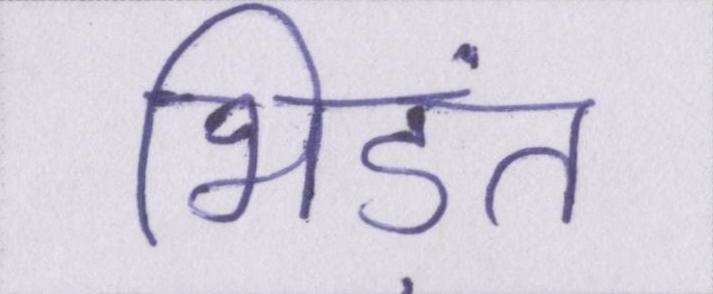 भिड़ंत